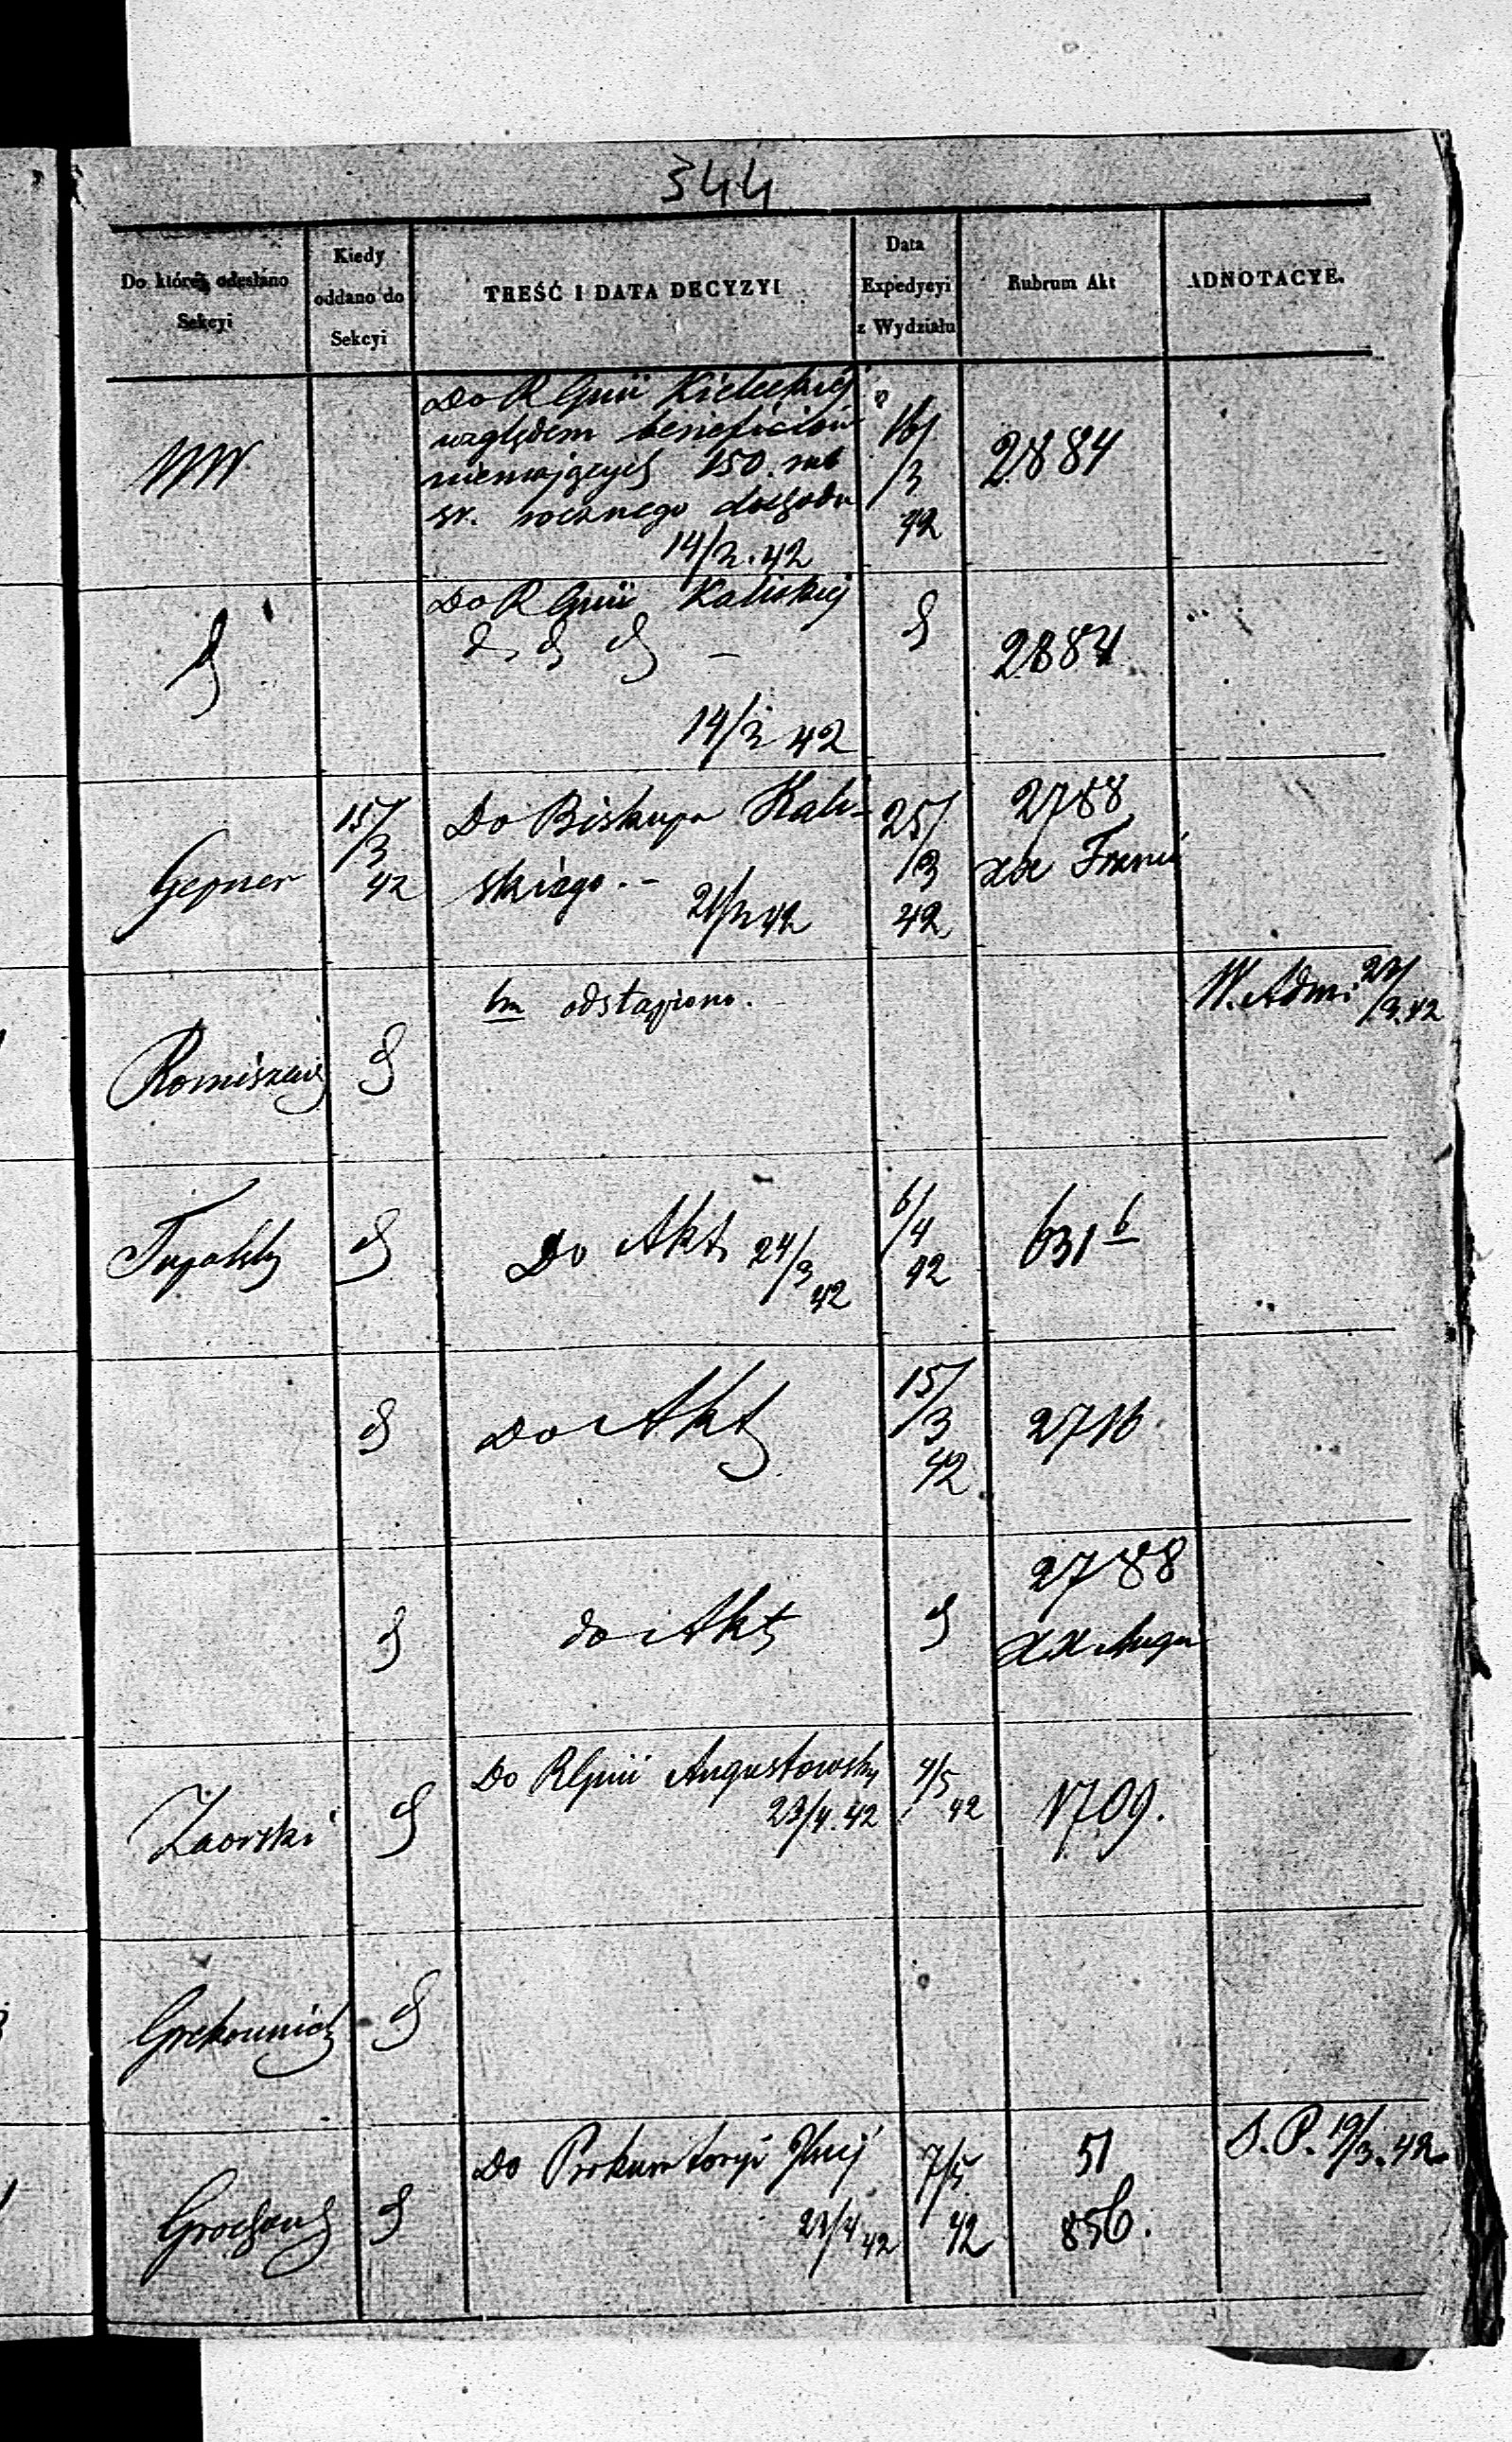 344
Do której odesłano Sekcyi
Kiedy oddano do Sekcyi
TREŚĆ I DATA DECYZYI
Data Expedycyi z Wydziału
Rubrum Akt
ADNOTACYE.
Do RGnii Kieleckiej
względem beneficiów
niemających 150. rub
sr. rocznego dochodu
14/3.42
16/3 42
2884
Do RGnii Kaliskiej
d d d —
14/3 42
d
2884
Gepner
15/3 42
Do Biskupa Kali-
skiego.-
21/3 42
25/3 42
2788
d
bm odstąpiono.
W. Admi 3.42
d
Do Akt 24/3 42
6/4 42
631 b
d
Do Akt
15/3 42
2716
d
do Akt
d
2788
Zaorski
d
Do RGnii Augustowsky
23/4.42
4/5 42
1709.
d
d
Do Prokuratoryi
42
7/5 42
51
856.
S.P. 19/3.42